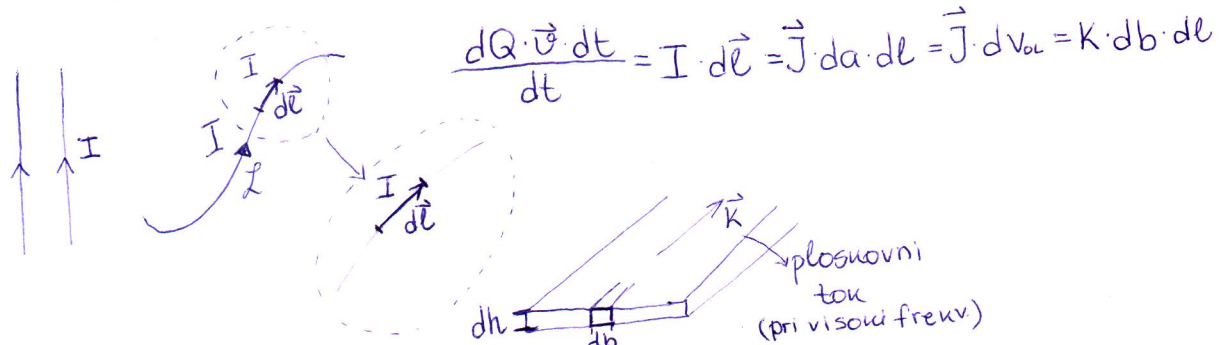 dQ·v⃗·dt / dt = I·dl⃗ = J⃗·da·dl = J⃗·dVOL = K·db·dl
I
I
dl⃗
I
L
I
dl⃗
K⃗
ploskovni
tok
(pri visoki frekv.)
dh
db